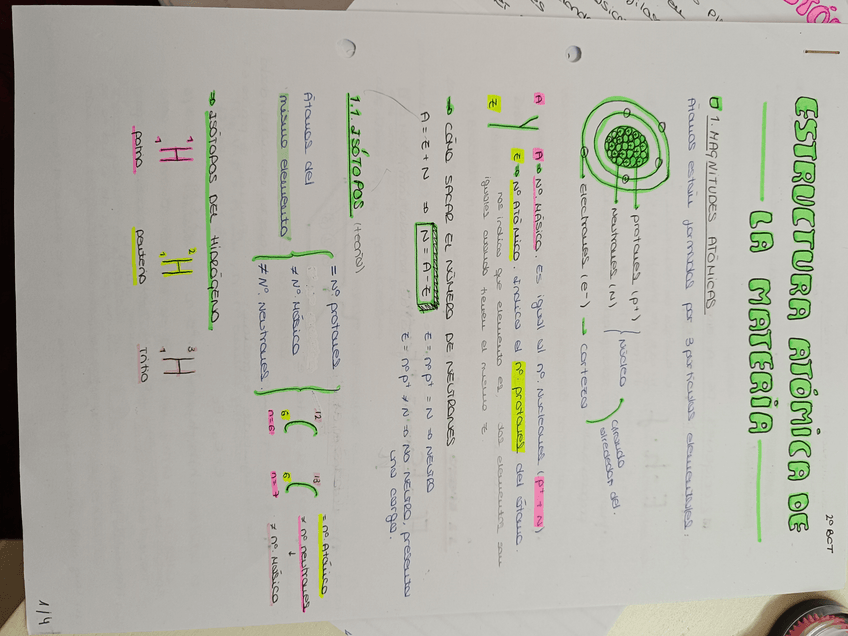 2º BCT
ESTRUCTURA ATÓMICA DE
LA MATERIA
1. MAGNITUDES ATÓMICAS
Átomos están formados por 3 partículas elementales:
protones (p⁺)
Neutrones (N)
Núcleo
Electrones (e⁻) → corteza
girando
alrededor del.
A
Z
Y
A → Nº MÁSICO. Es igual al nº. Nucleones (p⁺ + N)
Z → Nº ATÓMICO. indica el nº. protones del átomo.
nos indica que elemento es, dos elementos son
iguales cuando tienen el mismo Z
→ CÓMO SACAR EL NÚMERO DE NEUTRONES
A = Z + N ⇒ N = A - Z
Z = nº p⁺ = N ⇒ NEUTRO
Z = nº p⁺ ≠ N ⇒ NO NEUTRO, presenta
una carga.
1.1. ISÓTOPOS (teoría)
Átomos del
mismo elemento
= Nº. protones
≠ Nº MÁSICO
≠ Nº. Neutrones.
12
6
C
n=6
13
6
C
n=7
= nº Atómico
≠ nº neutrones
↓
≠ nº Másico
⇒ ISÓTOPOS DEL HIDRÓGENO
1
1
H
2
1
H
3
1
H
protio
Deuterio
Tritio
1/4